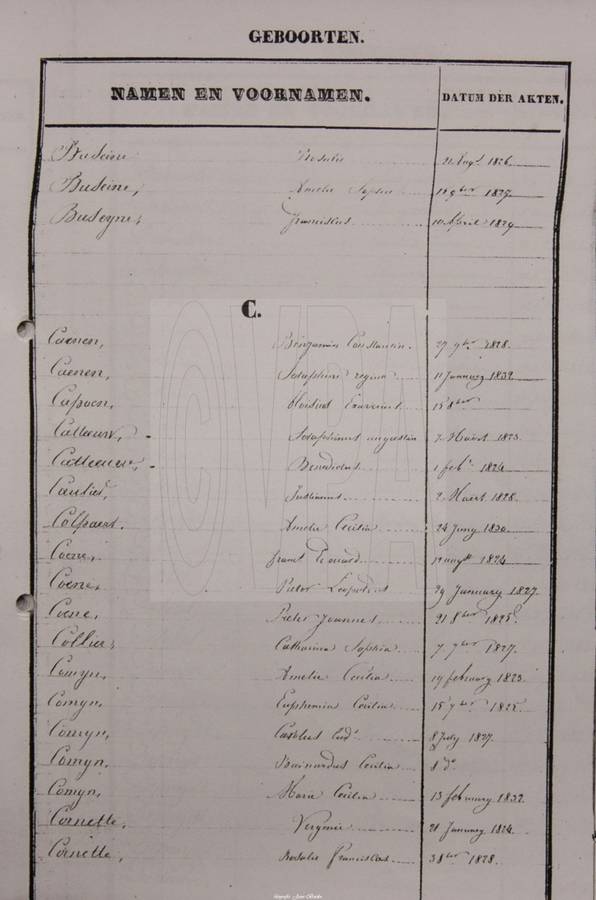 GEBOORTEN.
NAMEN EN VOORNAMEN. DATUM DER AKTEN.
Buseine Rosalie 1826.
Buseine, Amelie Sophie 15 9ber 1827.
Buseyne, Franciscus 10 April 1829
C.
Caenen, Benjamin Constantin. 27 9br 1828.
Caenen, Seraphine regina 11 January 1832
Capoen, 15 8ber
Catteeuw, Seraphinus augustin 2 Maert 1823.
Catteeuw, Benedictus 1 feb. 1824
Caulier, Justinus 2 Maert 1828.
Colpaert. Amelie Cecilia 24 Juny 1830.
Coene, 1824
Coene, Pieter Leopoldus 29 January 1827.
Coene, Pieter Joannes 21 8ber 1825.
Collier, Catharina Sophia 7 7ber 1827.
Comyn, Amelie Cecilia 19 february 1823.
Comyn, Euphemia Cecilia 15 7ber 1825.
Comyn, Carolus Lud. 8 July 1827.
Comyn, Cecilia 8 do
Comyn, Marie Cecilia 13 february 1832.
Cornette, Virginie 21 January 1824.
Cornette, Rosalie franciscus 3 8ber 1828.